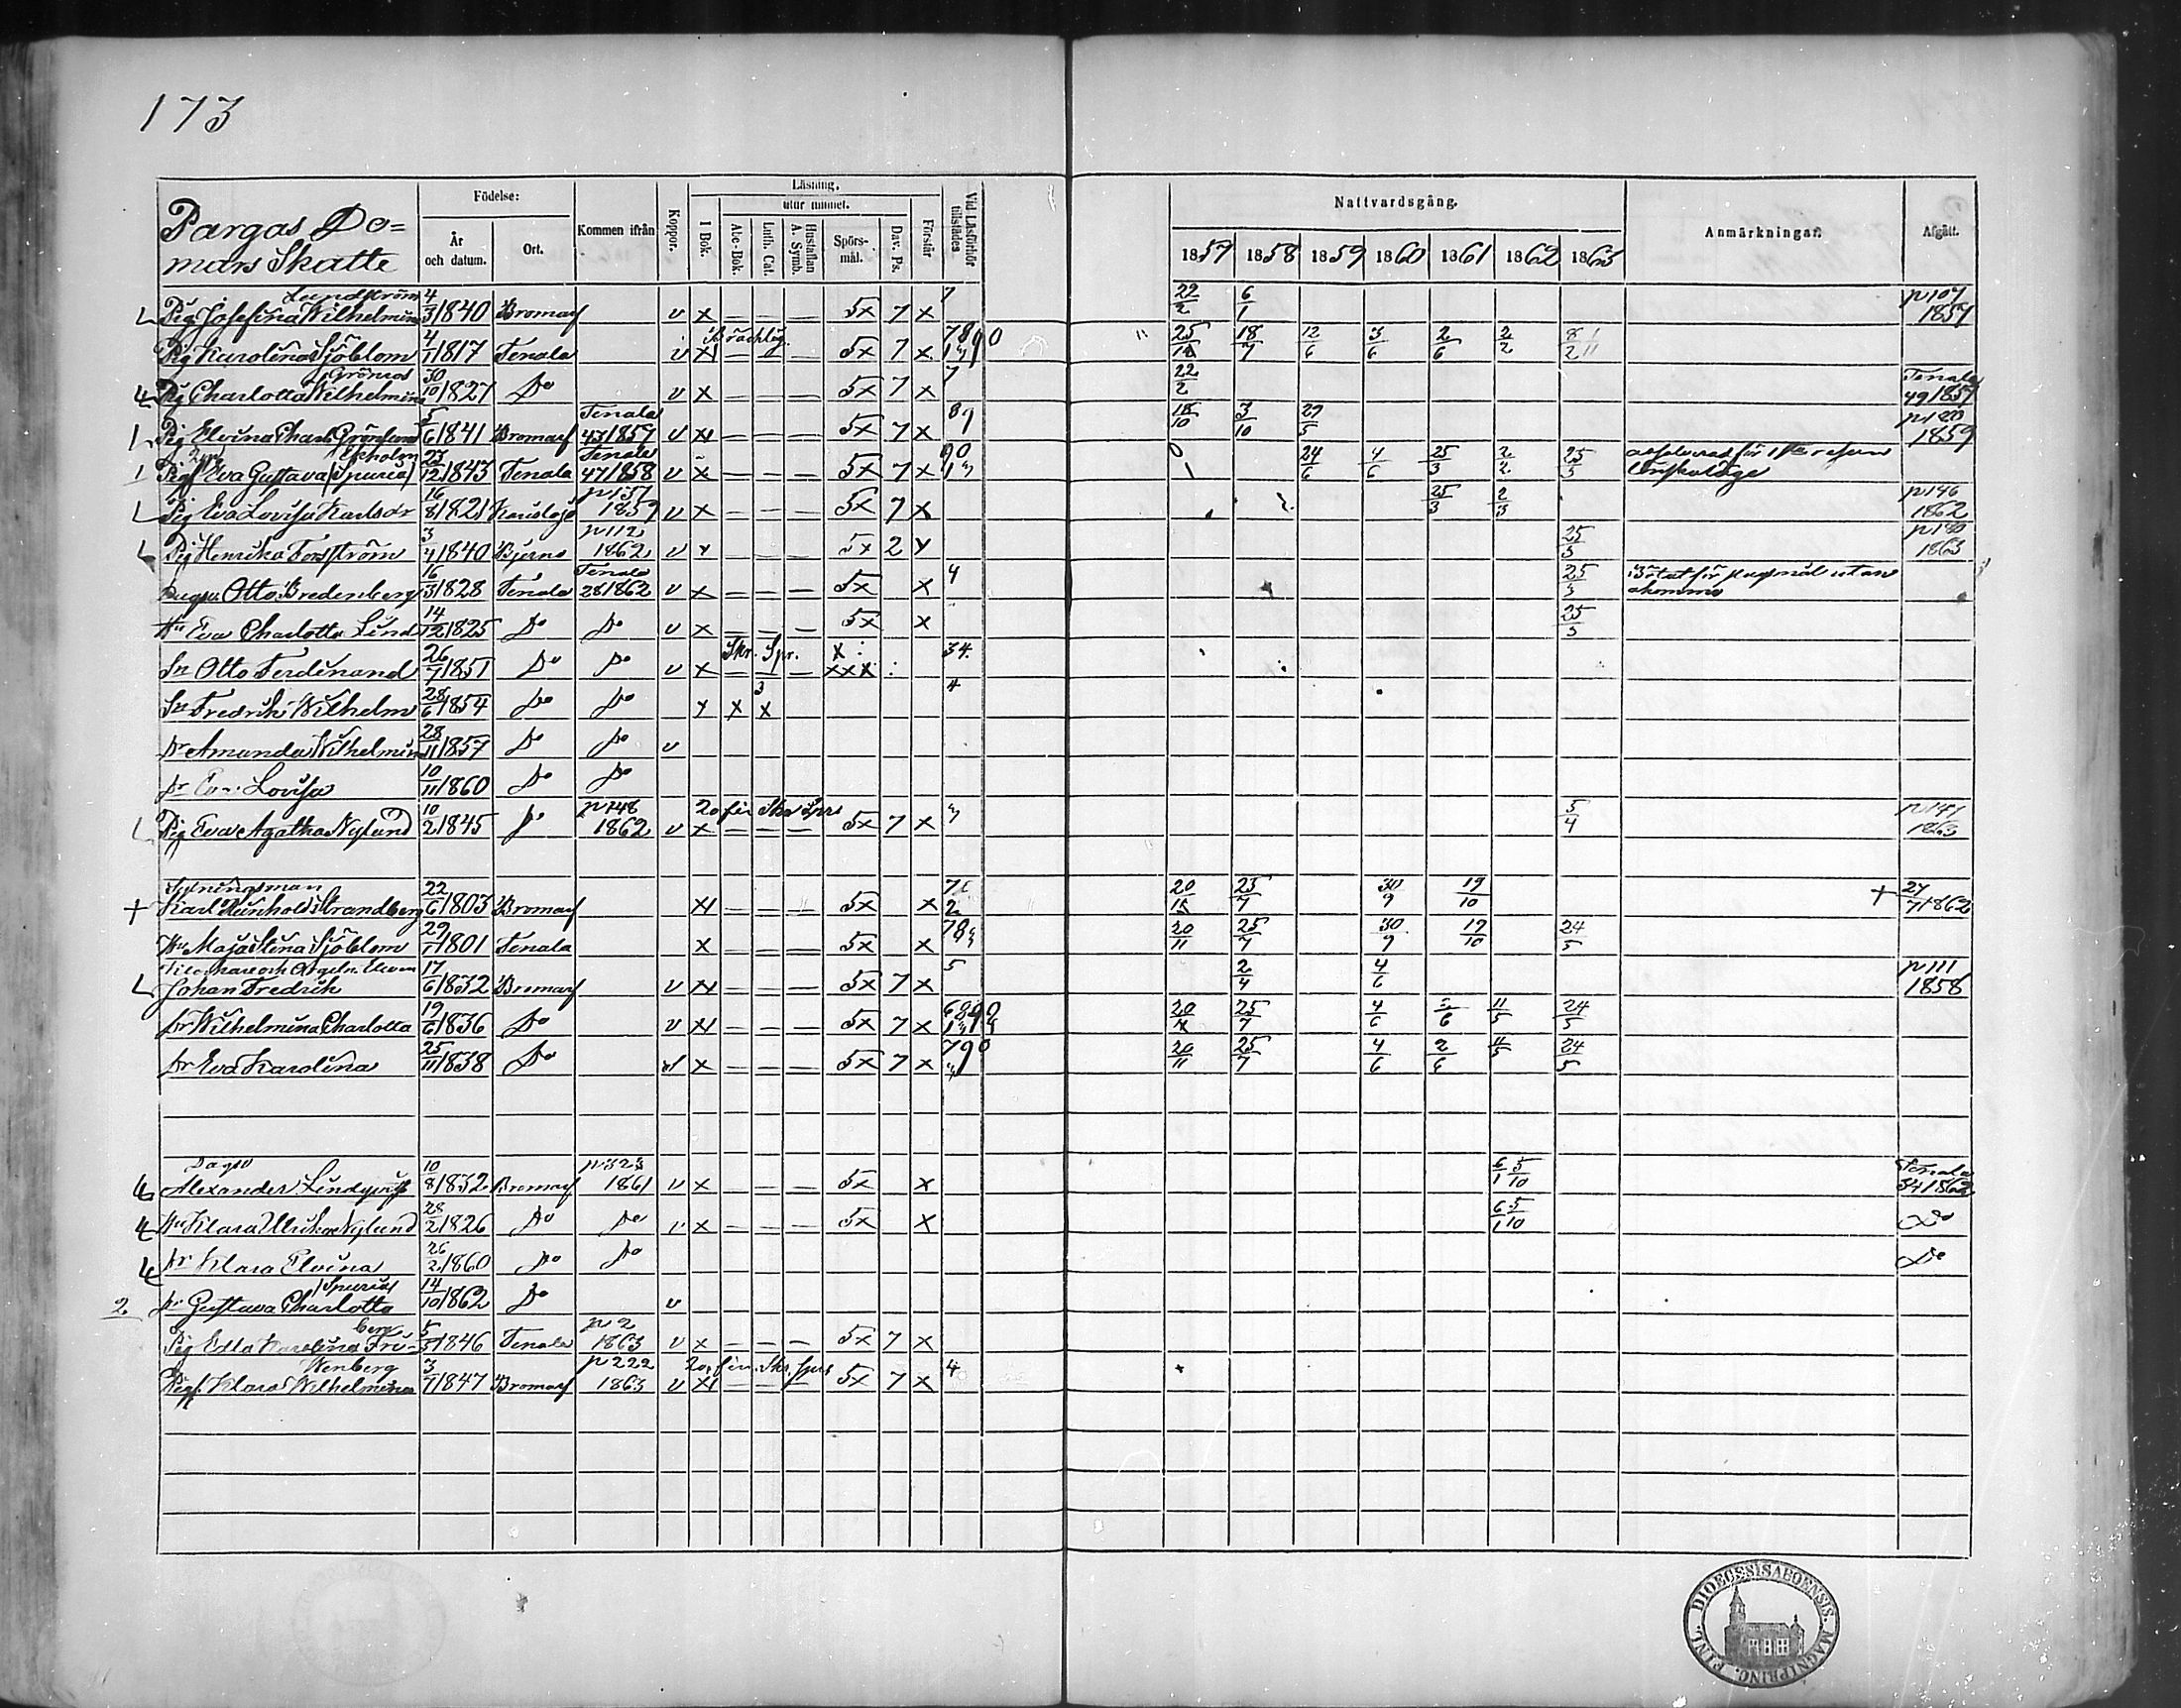 173
Pargas Do=
mars Skatte
Födelse:
År och datum.
Ort.
Kommen ifrån
Koppor.
Läsning,
utur minnet.
I Bok.
Abc-Bok.
Luth. Cat.
Hustaflan A. Symb.
Spörs-mål.
Dav. Ps.
Förstår
Vid Läsförhör tillstädes
Nattvardsgång.
1857 1858 1859 1860 1861 1862 1863
Anmärkningar.
Afgått.
Lundström
Pig Josefina Wilhelmina 4/3 1840 Bromarf v x — — — 5x 7 x 7 22/2 6/1 p 107 1857
Pig Karolina Sjöblom 4/1 1817 Tenala v x — — — 5x 7 x 25/ 18/7 12/6 3/6 2/6 2/2
Grönros
Pig Charlotta Wilhelmina 30/10 1827 Do v x — — — 5x 7 x 7 22/2 Tenala 49 1857
Pig Elvina Charl. Grönlund 5/6 1841 Bromarf Tenala 43 1857 v x — — — 5x 7 x 89 18/10 3/10 29/5 1859
Ekholm
Eva Gustava (Spuria) 23/12 1843 Tenala Tenala 47 1858 v x — — — 5x 7 x 24/6 4/6 25/3 2/2 25/3
Pig Eva Lovisa Karlsdr 16/8 1821 Karislojo p 157 1859 v x — — — 5x 7 x 25/3 2/3 p 146 1862
Pig Henrika Forsström 3/4 1840 Bjerno p 112 1862 v x — — — 5x 2 x 25/3 1863
Otto Bredenberg 16/3 1828 Tenala Tenala 28 1862 v x — — — 5x x 4 25/3 utan
Hu Eva Charlotta Lind 14/12 1825 Do Do v x — — — 5x x 25/3
Skr. Spr.
Sn Otto Ferdinand 26/7 1851 Do Do v x — — — xxx 34.
Sn Fredrik Wilhelm 28/6 1854 Do Do x x x 4
Dr Amanda Wilhelmina 28/11 1857 Do Do v
Dr Eva Lovisa 10/11 1860 Do Do
Pig Eva Agatha Nylund 10/2 1845 Do p 148 1862 v x — — — 5x 7 x 5/4 1863
Sytningsman
Karl Reinhold Strandberg 22/6 1803 Bromarf x — — — 5x x 20/11 25/7 30/9 19/10 + 27/7 1862
Hu Maja Stina Sjöblom 29/1 1801 Tenala x — — — 5x x 20/11 25/7 30/9 19/10 24/5
Johan Fredrik 17/6 1832 Bromarf v x — — — 5x 7 x 5 2/4 4/6 p 111 1858
Dr Wilhelmina Charlotta 19/6 1836 Do v x — — — 5x 7 x 20/11 25/7 4/6 2/6 11/5 24/5
Dr Eva Karolina 25/11 1838 Do v x — — — 5x 7 x 20/11 25/7 4/6 2/6 11/5 24/5
Alexander Lindqvist 10/8 1832 Bromarf 1861 v x — — — 5x x 6/1 5/10 Tenala 34 1862
Hu Klara Ulrika Nylund 28/2 1826 Do Do v x — — — 5x x 6/1 5/10 Do
Dr Klara Elvina 26/2 1860 Do Do Do
Spuria
2 Dr Gustava Charlotta 14/10 1862 Do v
berg
Pig Edla Karolina Fri- 5/5 1846 Tenala p 2 1863 v x — — — 5x 7 x
Wenberg
Pig Klara Wilhelmina 3/7 1847 Bromarf p 222 1863 v x — — — 5x 7 x 4
DIOECESIS ABOENSIS. MAGNI PRINC. FINL.